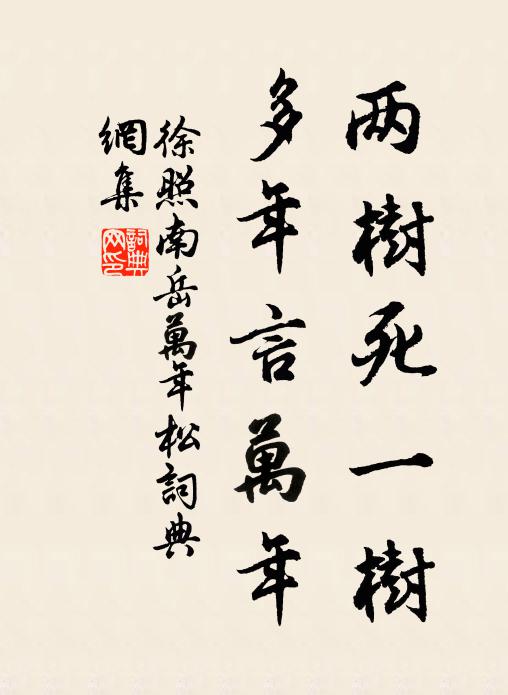 两樹死一樹
多年言萬年
徐照南岳萬年松詞典
網集
詞典网印